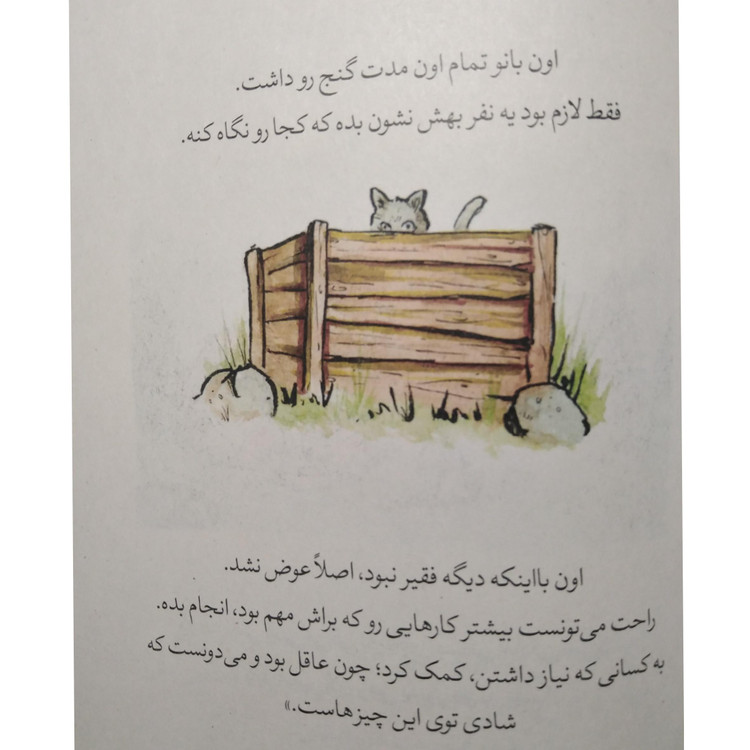 اون بانو تمام اون مدت گنج رو داشت.
فقط لازم بود یه نفر بهش نشون بده که کجا رو نگاه کنه.
اون بااینکه دیگه فقیر نبود، اصلاً عوض نشد.
راحت می‌تونست بیشتر کارهایی رو که براش مهم بود، انجام بده.
به کسانی که نیاز داشتن، کمک کرد؛ چون عاقل بود و می‌دونست که
شادی توی این چیزهاست.»